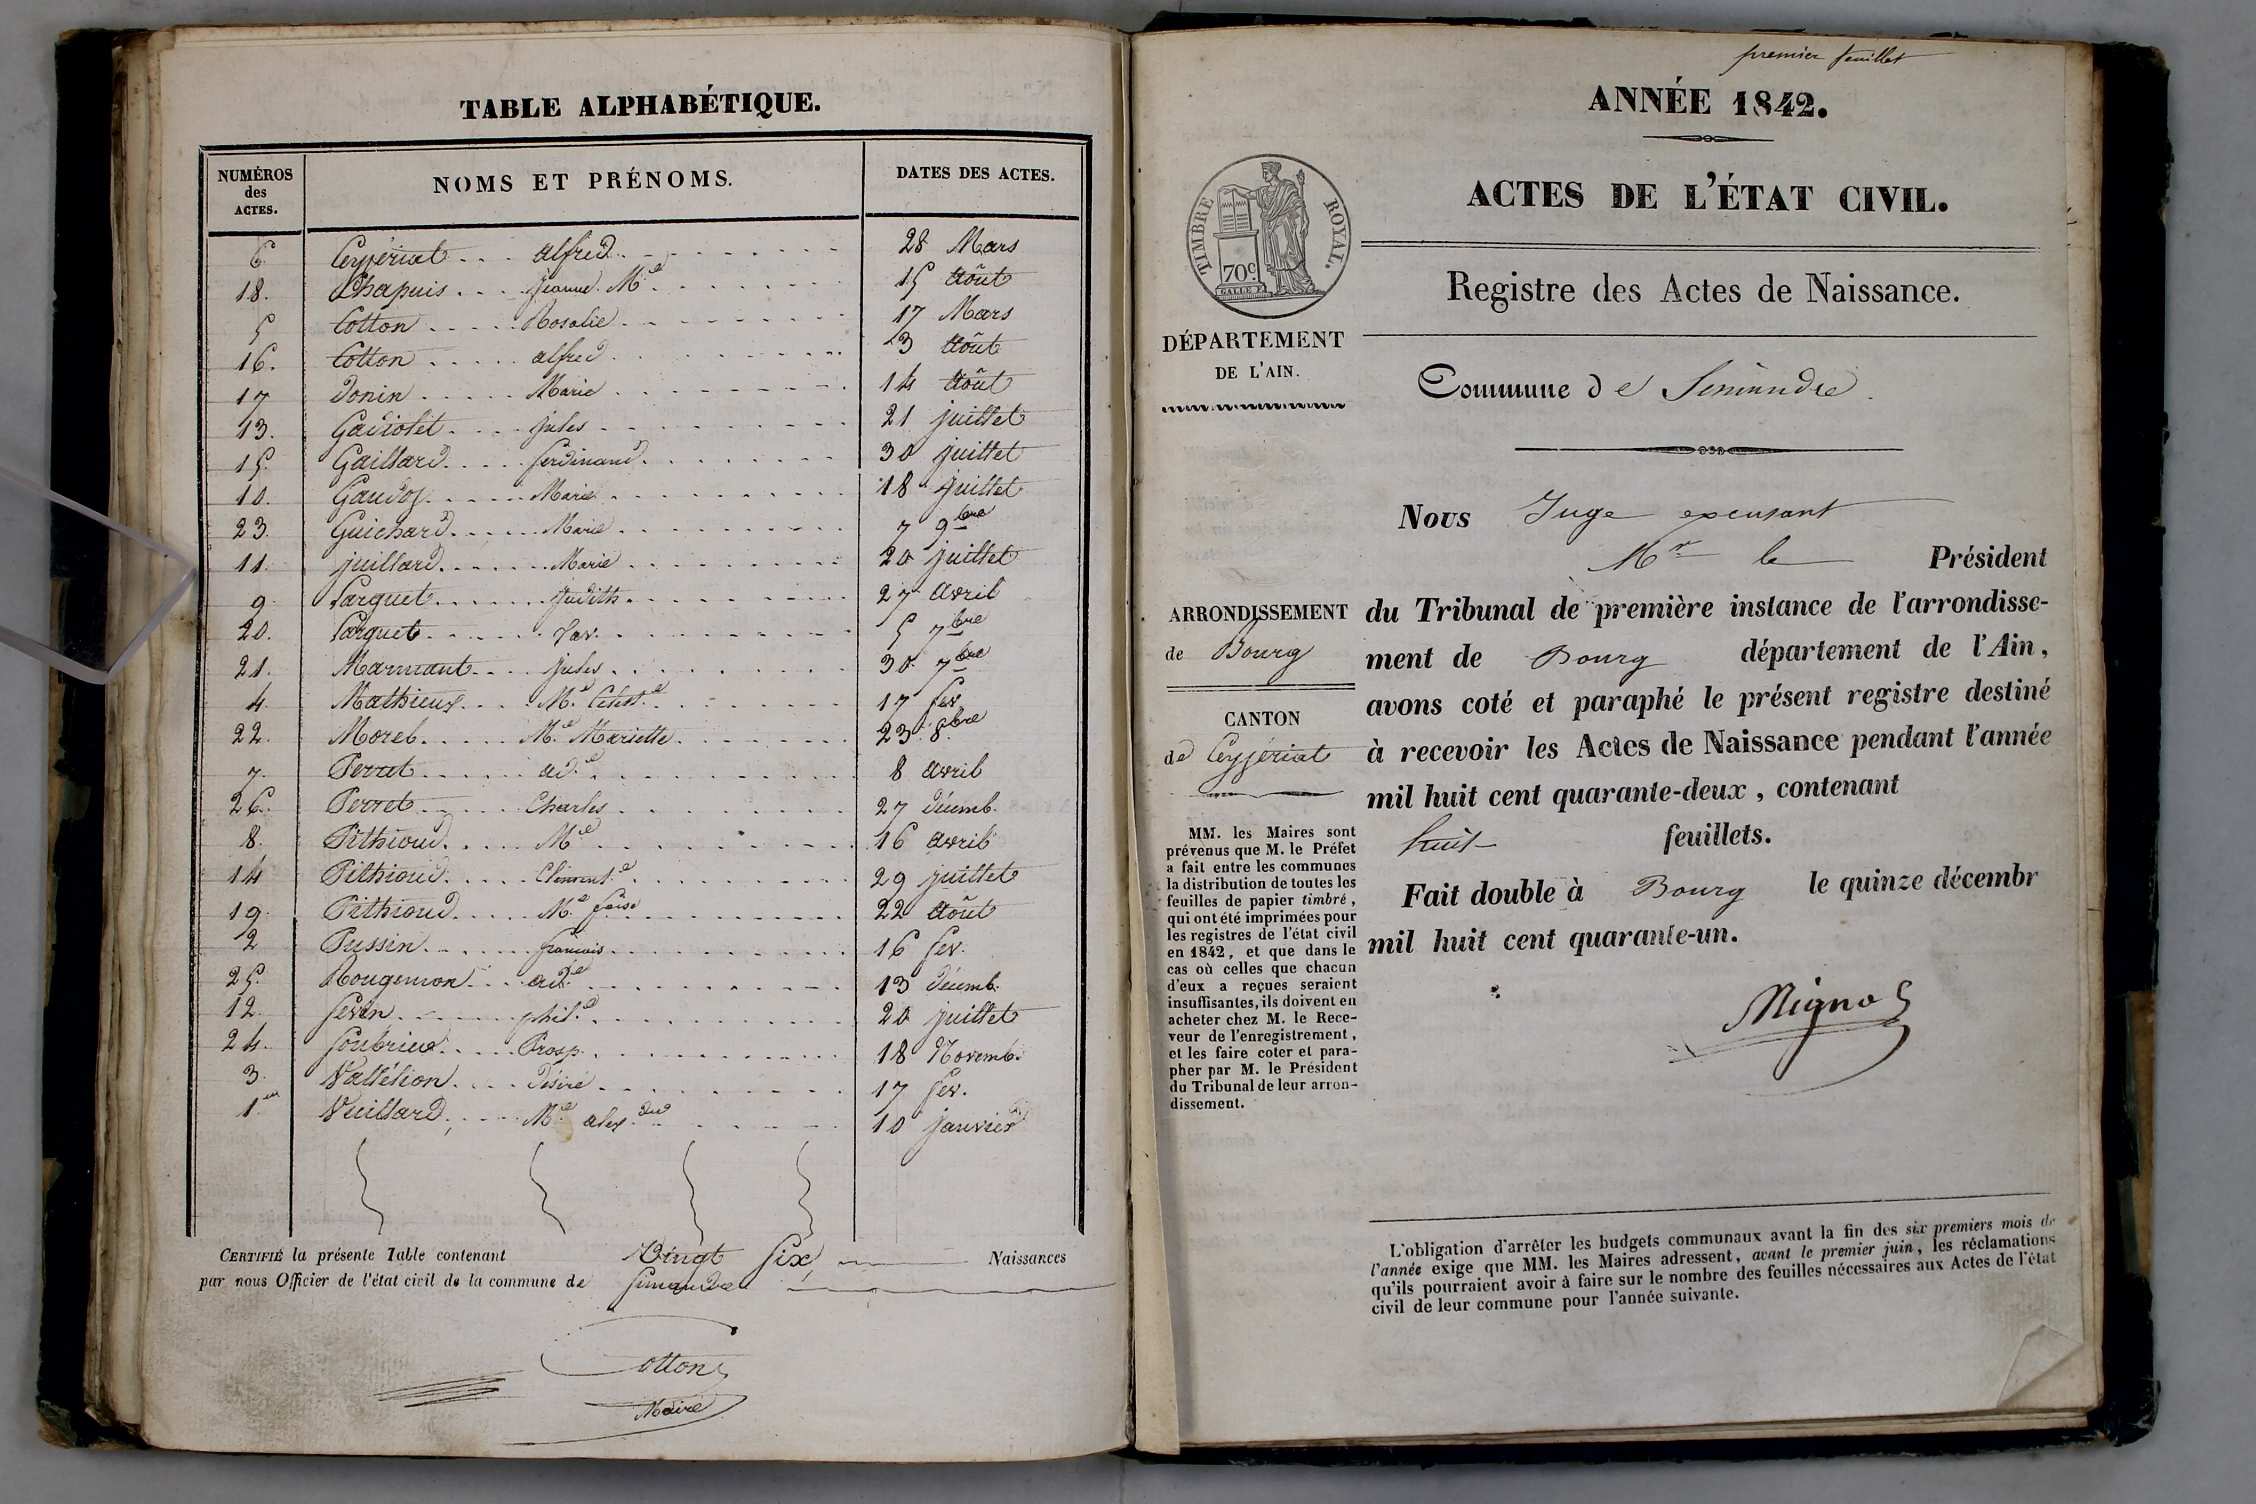 TABLE ALPHABÉTIQUE.
NUMÉROS des ACTES. NOMS ET PRÉNOMS. DATES DES ACTES.
6 Ceyzériat alfred 28 Mars
18. Chapuis Jeanne Mie 15 Août
5 Cotton Rosalie 17 Mars
16. Cotton alfred 3 Août
17 Donin Marie 14 Août
13. Gadiolet jules 21 juillet
15. Gaillard ferdinand 30 juillet
10. Marie 18 juillet
23. Guichard Marie 7 9bre
11. juillard Marie 20 juillet
9 Parguet Judith 27 avril
20. Parguet 5 7bre
21. Marmant jules 30 7bre
4. Mathieux Me 17 fev
22. Morel Me Mariette 23 8bre
7. Perrat ad.e 8 avril
26. Perret Charles 27 décemb.
8. Pithioud Me 16 avril
14 Pithioud 29 juillet
19. Pithioud Me 22 Août
2 Pussin francois 16 fev.
25. Rougemon ad.e 13 décemb.
12. phil.e 20 juillet
24. Soubrier Prosp. 18 Novemb.
3. Vallélion Désiré 17 fev.
1er Vuillard Me 10 janvier
CERTIFIÉ la présente Table contenant Vingt Six Naissances
par nous Officier de l'état civil de la commune de Simandre
Cotton
Maire
premier feuillet
ANNÉE 1842.
ACTES DE L'ÉTAT CIVIL.
TIMBRE ROYAL.
70c.
Registre des Actes de Naissance.
DÉPARTEMENT
DE L'AIN.
Commune de Simandre
Nous Juge excusant
Mr le Président
ARRONDISSEMENT
de Bourg
CANTON
de Ceyzériat
du Tribunal de première instance de l'arrondisse-
ment de Bourg département de l'Ain,
avons coté et paraphé le présent registre destiné
à recevoir les Actes de Naissance pendant l'année
mil huit cent quarante-deux, contenant
huit feuillets.
Fait double à Bourg le quinze décembr
mil huit cent quarante-un.
MM. les Maires sont
prévenus que M. le Préfet
a fait entre les communes
la distribution de toutes les
feuilles de papier timbré,
qui ont été imprimées pour
les registres de l'état civil
en 1842, et que dans le
cas où celles que chacun
d'eux a reçues seraient
insuffisantes, ils doivent en
acheter chez M. le Rece-
veur de l'enregistrement,
et les faire coter et para-
pher par M. le Président
du Tribunal de leur arron-
dissement.
L'obligation d'arrêter les budgets communaux avant la fin des six premiers mois de
l'année exige que MM. les Maires adressent, avant le premier juin, les réclamations
qu'ils pourraient avoir à faire sur le nombre des feuilles nécessaires aux Actes de l'état
civil de leur commune pour l'année suivante.